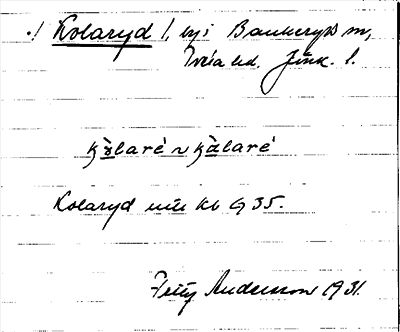 ./ Kolaryd l. by i Bankeryds sn,
Tveta hd. Jönk. l.
kòlaré ~ kàlaré
Kolaryd enl. kb G 35.
Fritz Andersson 1931.